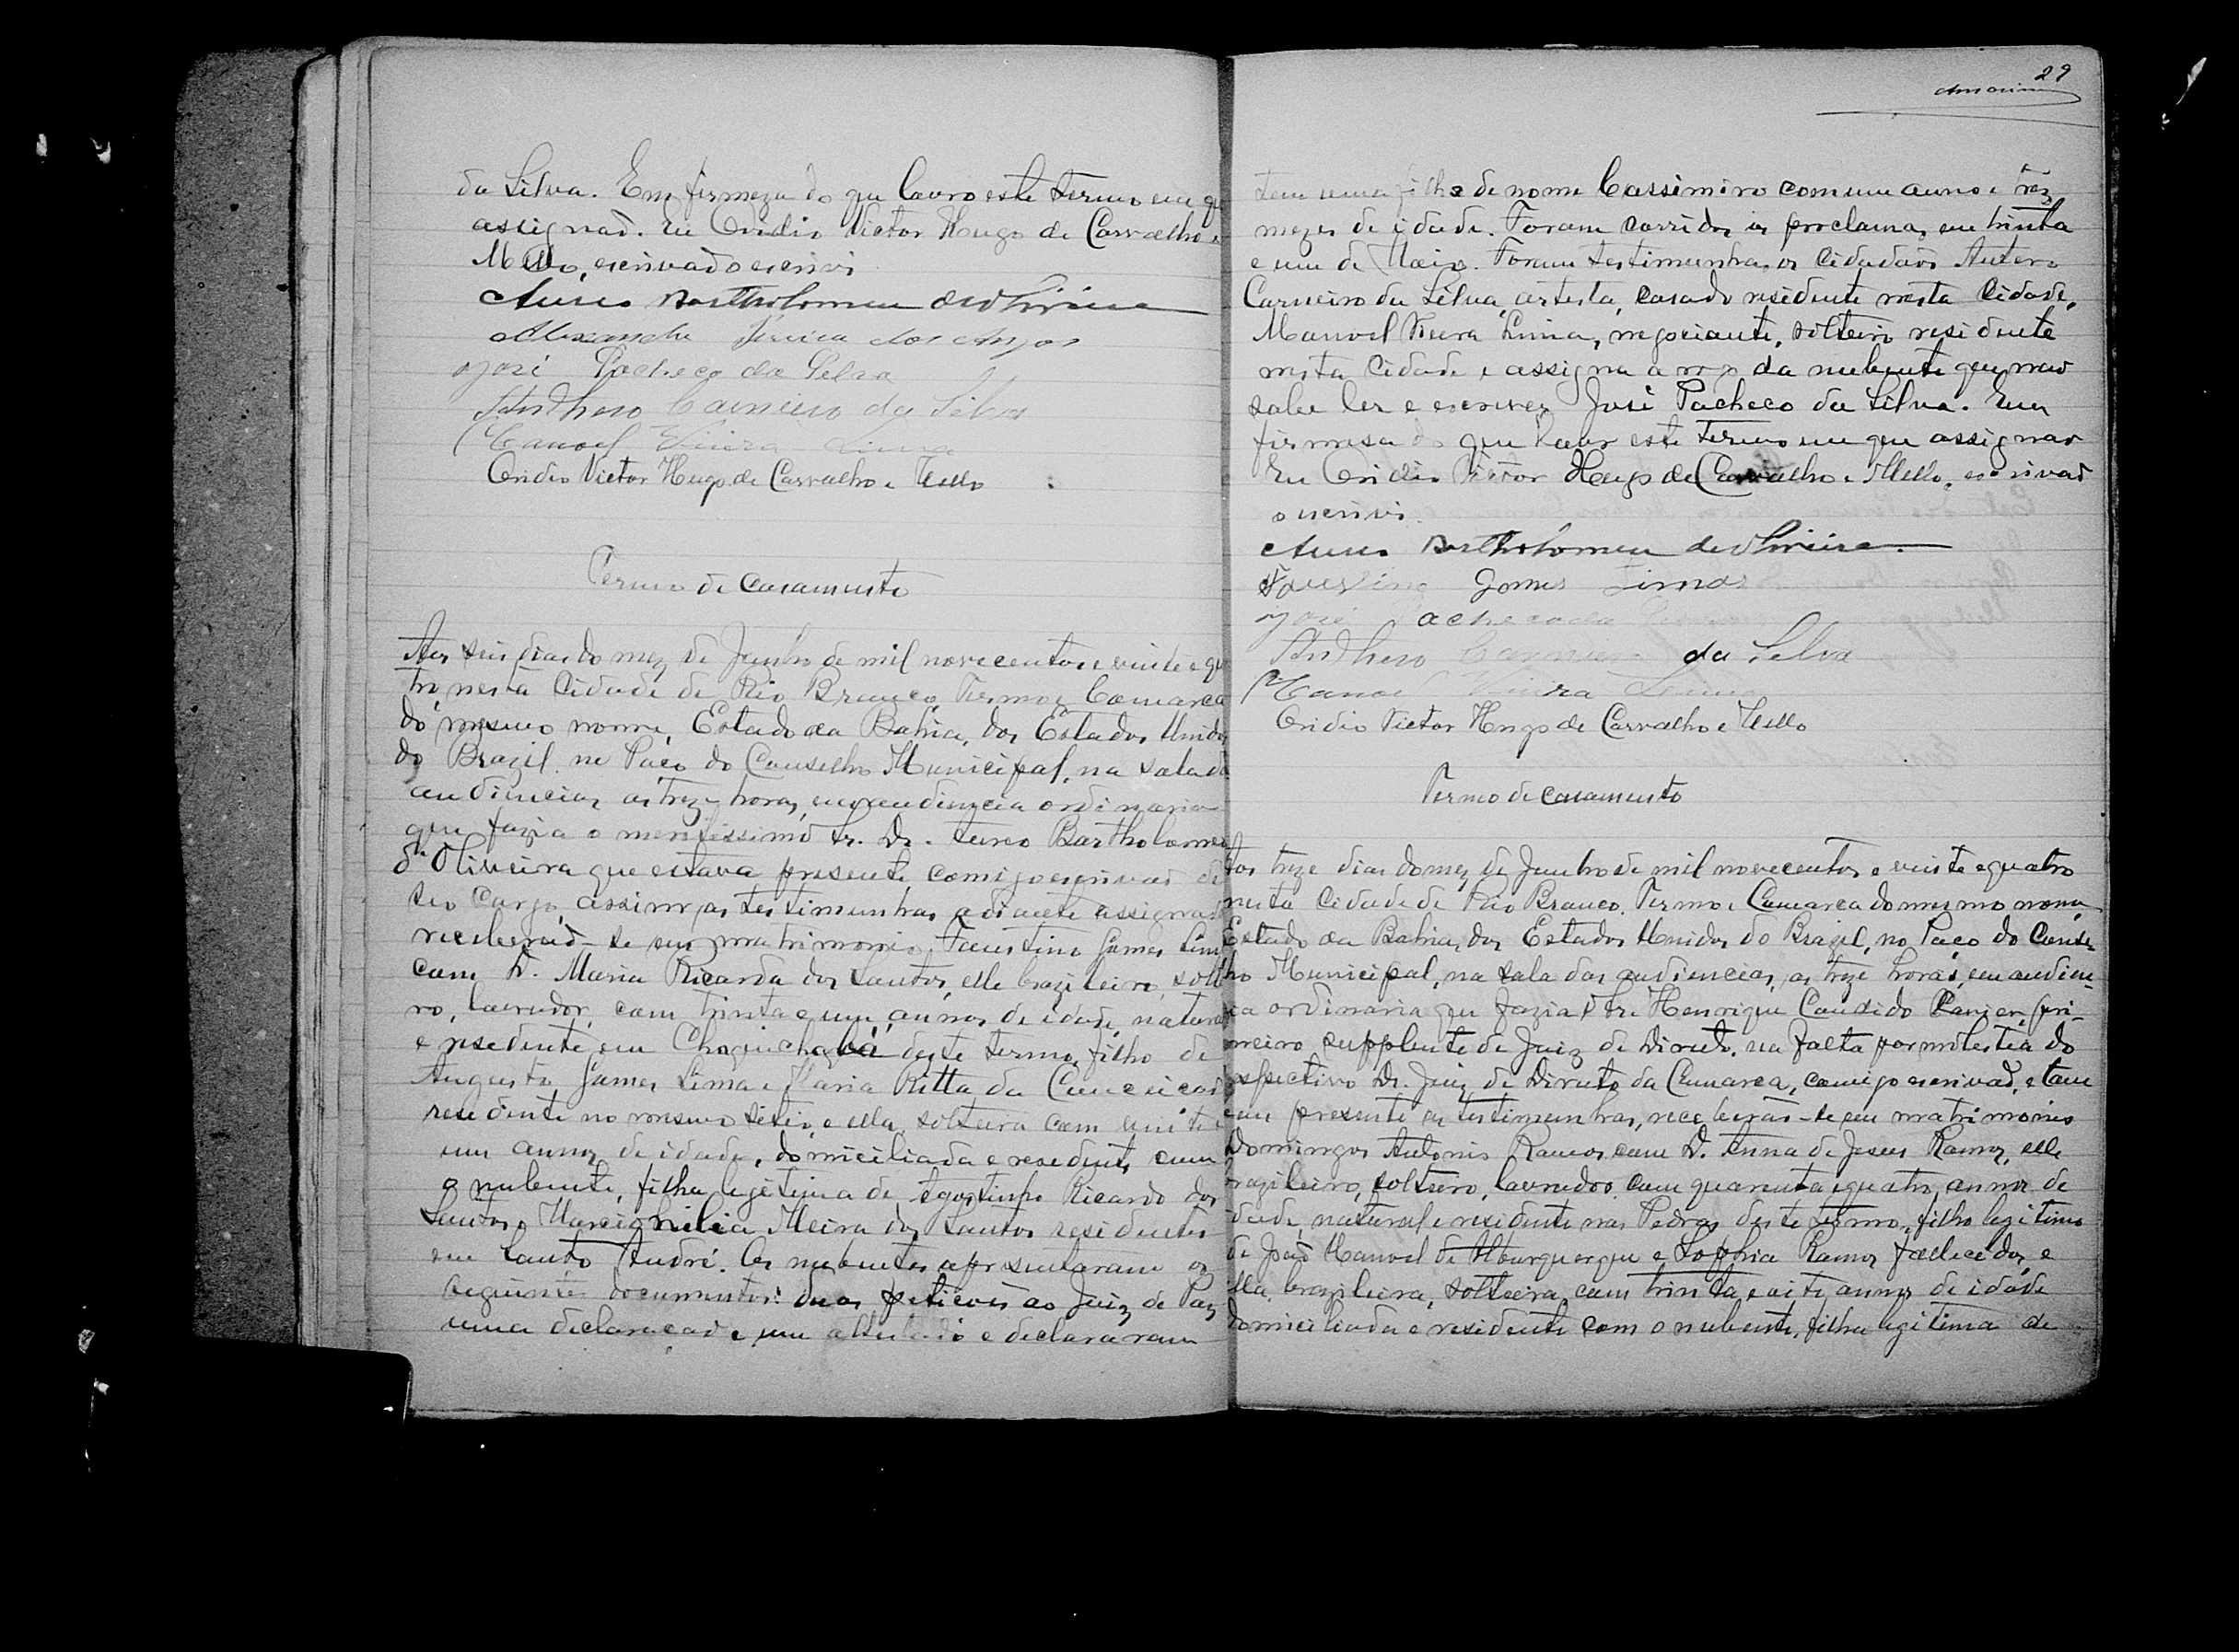 da Silva. Em firmeza do que lavro este termo em q
assignaõ. Eu Ovidio Victor Hugo de Carvalho e
Mello, escrivaõ o escrivi
Aureo Bartholomeu de Oliveira
Alexandre Pereira dos Anjos
José Pacheco da Silva
Anthero Carneiro da Silva
Manoel Vieira Lima
Ovidio Victor Hugo de Carvalho e Mello
Termo de casamento
Aos seis dias do mez de Junho de mil novecentos e vinte e qua
tro nesta Cidade de Rio Branco, Termo e Comarca
do mesmo nome, Estado da Bahia, dos Estados Unidos
do Brazil no Paço do Conselho Municipal, na sala da
audiencias as treze horas, em audiencia ordinaria
que fazia o meritissimo Sr. Dr. Aureo Bartholomeu
de Oliveira que estava presente, comigo escrivaõ de
seo Cargo, assim as testimunhas adiante assignad
receberaõ-se em matrimonio Faustino Gomes Lima
com D. Maria Ricarda dos Santos, elle brazileiro, soltei
ro, lavrador, com trinta e um annos de idade, natural
e residente em deste termo, filho de
Augusto Gomes Lima e Maria Ritta da Conceicaõ
residente no mesmo sitio, e ella, solteira com vinte e
um annos de idade, domiciliada e residente com
o nubente, filha legitima de Agostinho Ricardo dos
Santos e Meira dos Santos residentes
em Santo André. Os nubentes apresentaram os
seguinte documentos: duas peticoẽs ao Juiz de Paz
uma declaracaõ e um attestado e declararam
29
Amorim
tem uma filho de nome Cassimiro com um anno e trez
mezes de idade. Foram corridos os proclamas em trinta
e um de Maio. Foram testimunhas os Cidadaõs Antero
Carneiro da Silva, artista, casado residente nesta Cidade,
Manoel Vieira Lima, negociante, solteiro residente
nesta Cidade e assigna a rogo da nubente que naõ
sabe ler e escrever José Pacheco da Silva. Em
firmesa do que lavro este termo em que assignaõ
Eu Ovidio Victor Hugo de Carvalho e Mello, escrivaõ
o escrivi.
Aureo Bartholomeu de Oliveira.
Faustino Gomes Lima
José Pacheco da
Anthero Carneiro da Silva
Manoel Vieira Lima
Ovidio Victor Hugo de Carvalho e Mello
Termo de casamento
Aos treze dias do mez de Junho de mil novecentos e vinte e quatro
nesta Cidade de Rio Branco. Termo e Comarca do mesmo nome,
Estado da Bahia, dos Estados Unidos do Brazil, no Paço do Conse-
lho Municipal, na sala das audiencias, as treze horas, em audien-
cia ordinaria que fazia o Sr. Henrique Candido pri-
meiro supplente de Juiz de Direito. na falta por molestia do
respectivo Dr. Juiz de Direito da Comarca, comigo escrivaõ, e tam
bem presente as testimunhas, receberaõ-se em matrimonio
Domingos Antonio Ramos com D. Anna de Jesus Ramos, elle
brazileiro, solteiro, lavrador com quarenta e quatro annos de
idade, natural e residente nas Pedras deste termo, filho legitimo
de Joaõ Manoel de Alburquerque e Sophia Ramos fallecidos, e
ella, brazileira, solteira, com trinta e oito annos de idade
domiciliada e residente com o nubente, filha legitima de